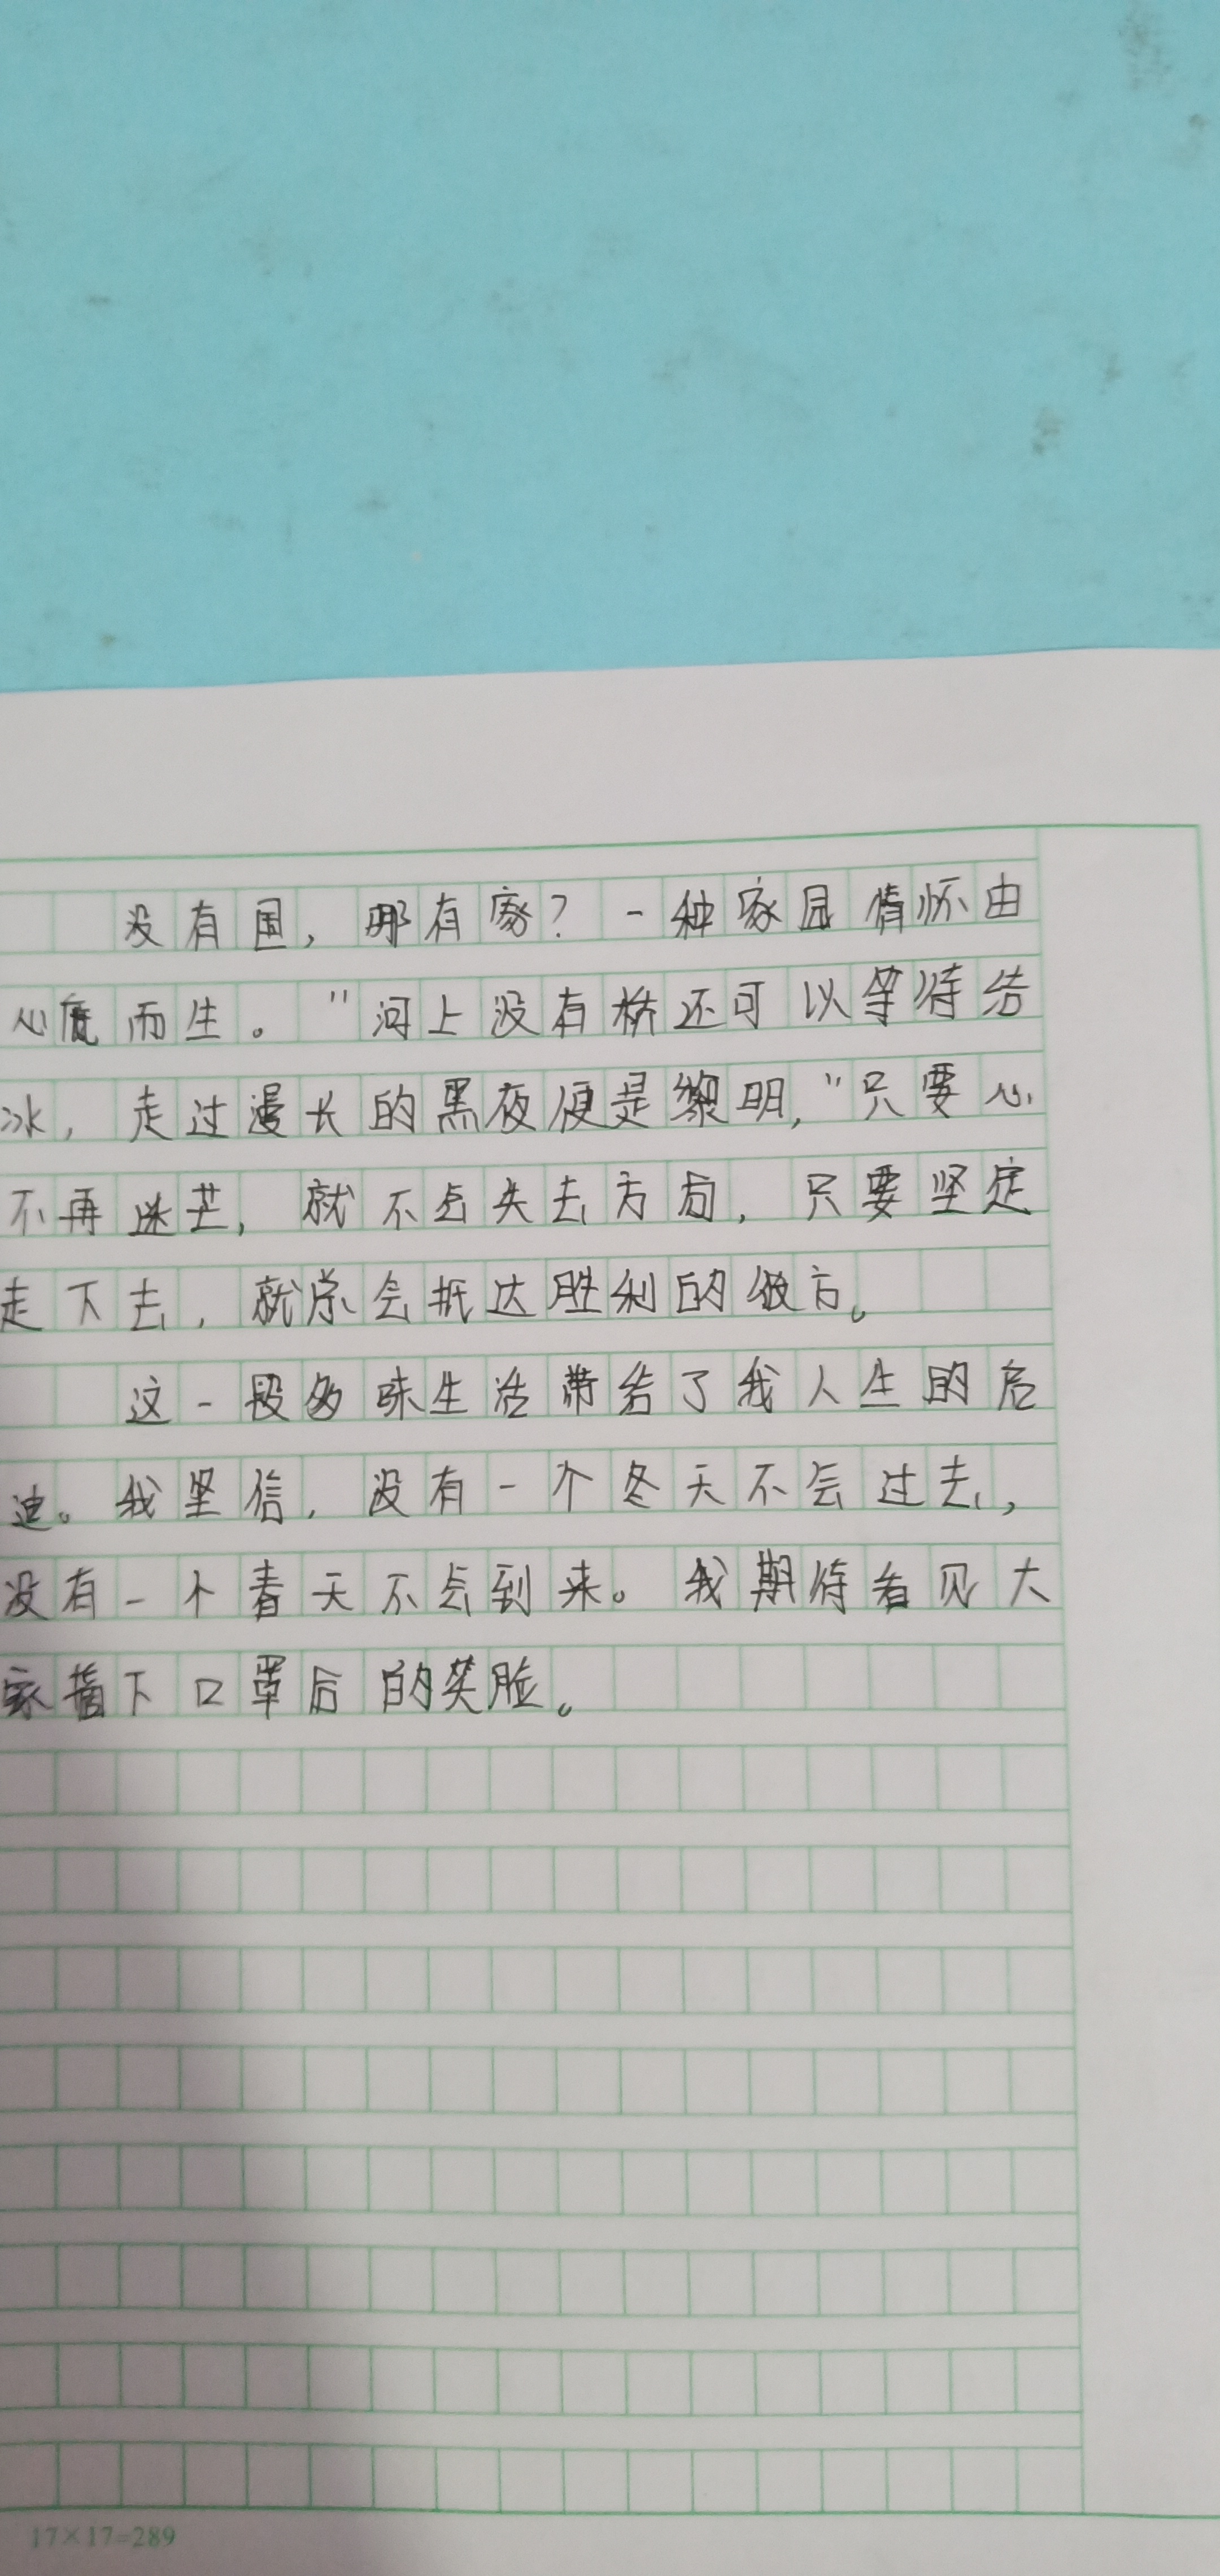 没有国，哪有家？一种家国情怀由
心底而生。"河上没有桥还可以等待结
冰，走过漫长的黑夜便是黎明，"只要心
不再迷茫，就不会失去方向，只要坚定
走下去，就总会抵达胜利的彼方。
这一段多味生活带给了我人生的启
迪。我坚信，没有一个冬天不会过去，
没有一个春天不会到来。我期待看见大
家摘下口罩后的笑脸。
17×17=289